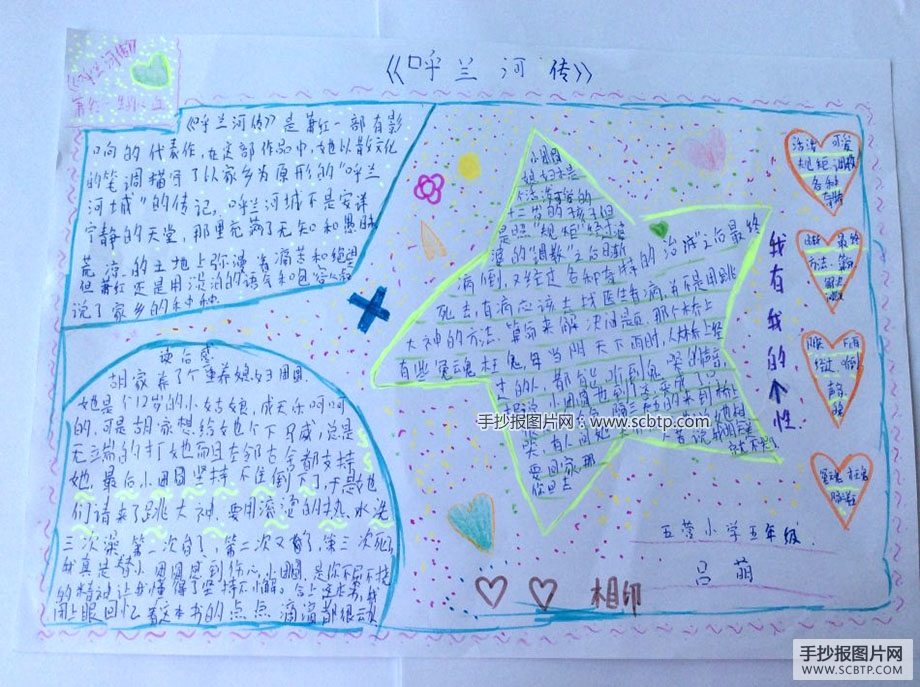 《呼兰河传》
《呼兰河传》
《呼兰河传》是萧红一部有影
响的代表作,在这部作品中,她以散文化
的笔调描写了以家乡为原形的“呼兰
河城”的传记,呼兰河城不是安详
宁静的天堂,那里充满了无知和愚昧
荒凉的土地上弥漫着痛苦和绝望
但萧红还是用淡泊的语气和包容
说了家乡的种种
读后感
胡家养了个童养媳妇团圆
她是个12岁的小姑娘,成天乐呵呵
的,可是胡家想给她个下马威,总是
无端的打她而且左邻右舍都支持
她,最后小团圆坚持不住倒下了,于是她
们请来了跳大神,要用滚烫的热水洗
三次澡,第一次昏了,第二次又昏了,第三次死了
我真是替小团圆感到伤心,小团圆是你不屈不挠
的精神让我懂得了坚持不懈。合上这本书,我
闭上眼回忆着这本书的点点滴滴都很
小团圆
媳妇本是
十二岁的孩子但
是照“规矩”经过
的“调教”之后
病倒,又经过各种奇怪的治减”之后最终
死去,有病应该去找医生看病,而不是用跳
大神的方法,算命来解决问题,那大桥上
有些冤魂枉鬼,每当阴天下雨时,人从桥上经
过的人,都能听到鬼哭的声音
哭,有人问她
要回家,那
你回去
我有我的个性
活泼 可爱
规矩 调教
各种
奇怪
最终
方法 算命
冤魂 枉鬼
五营小学五年级
吕萌
相印
手抄报图片网:www.scbtp.com
手抄报图片网
WWW.SCBTP.COM